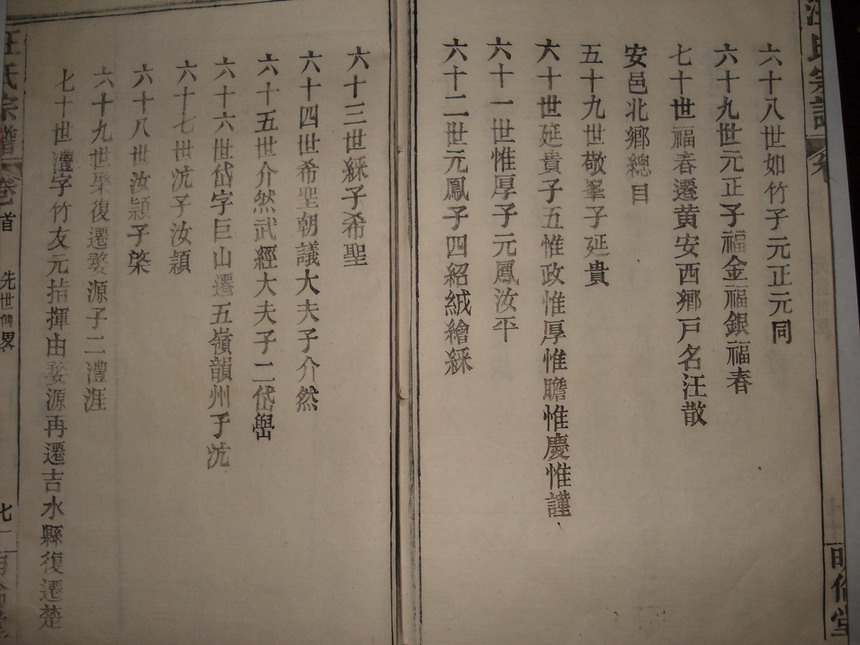 汪氏宗譜
六十八世如竹子元正元同
六十九世元正子福金福銀福春
七十世福春遷黄安西鄉戸名汪散
安邑北鄉總目
五十九世敬峯子延貴
六十世延貴子五惟政惟厚惟瞻惟慶惟謹
六十一世惟厚子元鳳汝平
六十二世元鳳子四紹絨繪綵
明倫堂
六十三世綵子希聖
六十四世希聖朝議大夫子介然
六十五世介然武經大夫子二岱嶨
六十六世岱字巨山遷五嶺韻州子沆
六十七世沆子汝頴
六十八世汝頴子棨
六十九世棨復遷婺源子二澧涯
七十世澧字竹友元指揮由婺源再遷吉水縣復遷楚
汪氏宗譜
卷首
先世傳畧
七